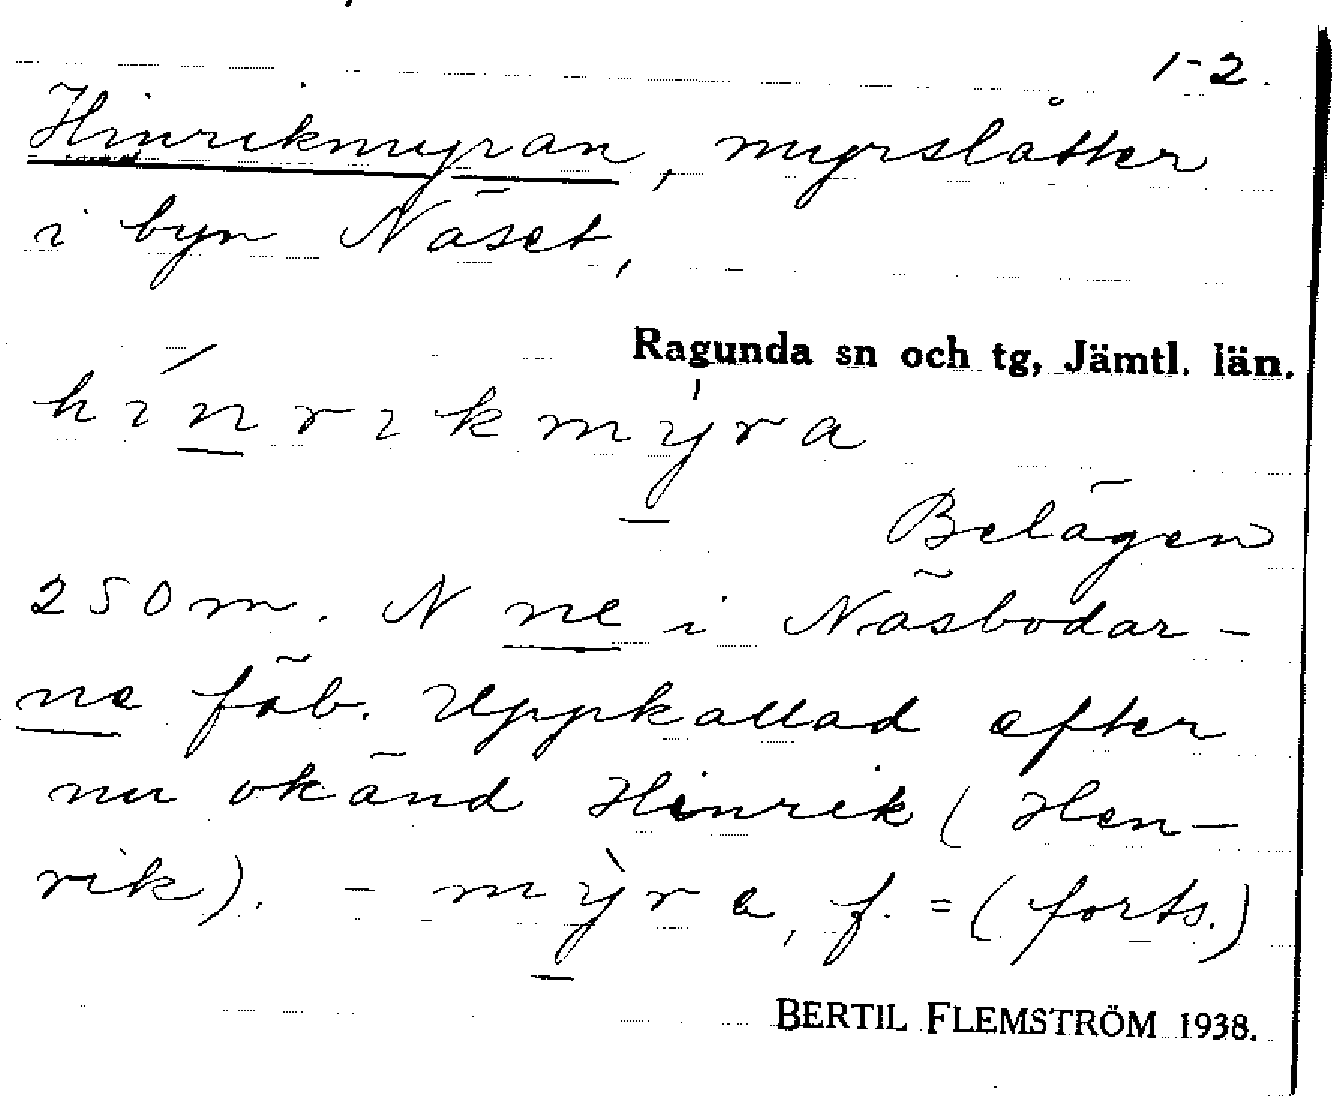 1-2.
Hinrikmyran, myrslåtter
i byn Näset,
Ragunda sn och tg, Jämtl. län.
hínrikmy̍ra
Belägen
250 m. N ne i Näsbodar-
ne fäb. Uppkallad efter
nu okänd Hinrik (Hen-
rik). - mỳra, f. = (forts.)
BERTIL FLEMSTRÖM 1938.